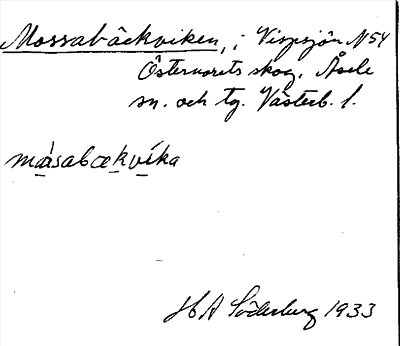 Mossabäckviken, i Vispsjön N54
Östernorets skog, Åsele
sn. och tg. Västerb. l.
måsabækvika
H A Söderberg 1933